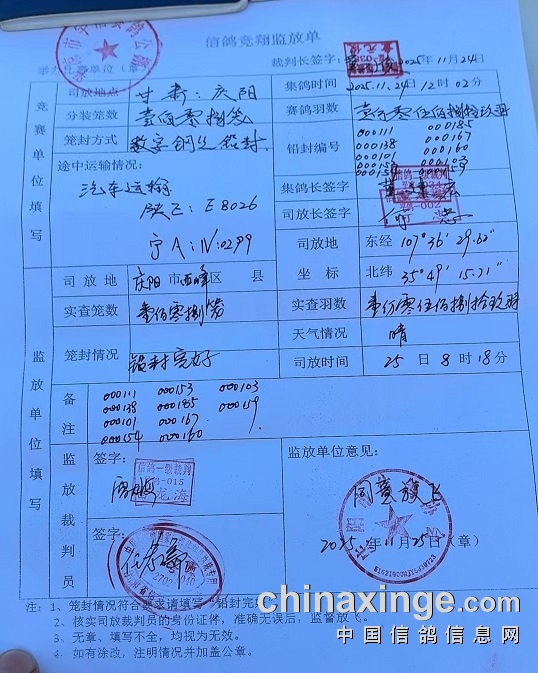 信鸽竞翔监放单
裁判长签字: 2025年11月24日
司放地点 甘肃:庆阳
集鸽时间 2025.11.24日12时02分
分装笼数 壹佰零捌笼
赛鸽羽数
笼封方式 数字钢丝铅封
铅封编号 000111 000185
000138 000167
000101 000160
途中运输情况:
汽车运输
E8026
宁A:
竞赛单位填写
集鸽长签字
司放长签字
司放地坐标 东经 107°36′29.62″
北纬 35°49′15.71″
司放地 庆阳市西峰区 县
实查笼数 壹佰零捌笼
实查羽数
天气情况 晴
笼封情况 铅封完好
司放时间 25日8时18分
监放单位填写
备注 000111 000153 000103
000138 000185 000159
000101 000167
000154 000160
监放裁判员
签字:
信鸽一级裁判
签字:
监放单位意见:
同意放飞
2025年11月25日(章)
注:1、笼封情况符合要求请填写“铅封完
2、核实司放裁判员的身份证件,准确无误后,监督放飞。
3、无章、填写不全,均视为无效。
4、如有涂改,注明情况并加盖公章。
chinaxinge.com
中国信鸽信息网